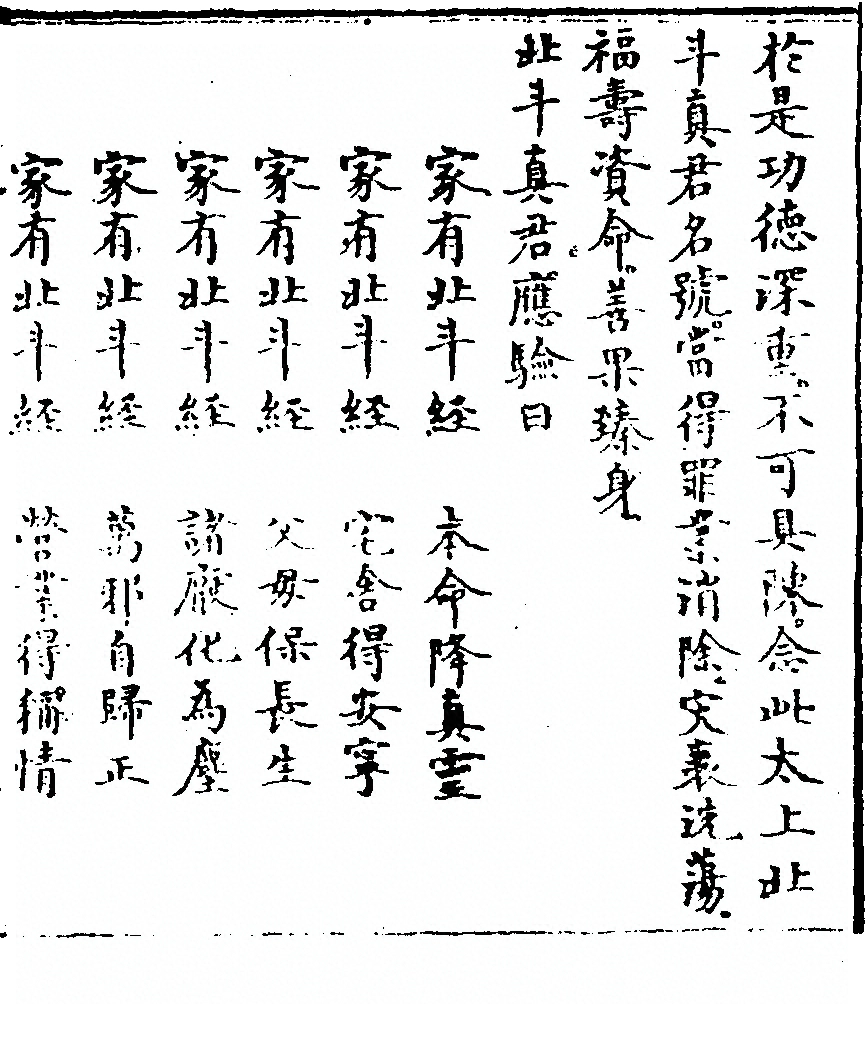 於是功德深重。不可具陳。念此太上北
斗真君名號。當得罪業消除。灾衰洗蕩。
福壽資命。善果臻身。
北斗真君應驗曰
家有北斗経 本命降真靈
家有北斗経 宅舍得安寧
家有北斗経 父母保長生
家有北斗経 諸厭化為塵
家有北斗経 萬邪自歸正
家有北斗経 營業得稱情